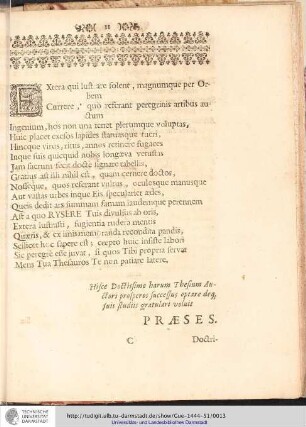 11
EXtera qui lustrare solent, magnumque per Or-
bem
Currere, quò referant peregrinis artibus au-
ctum
Ingenium, hos non una tenet plerumque voluptas,
Huic placet exesos lapides statuasque tueri,
Hincque viros, ritus, annos retinere fugaces
Inque suis quicquid nobis longæva vetustas
Jam sacrum fecit docte signare tabellis,
Gratius ast illi nihil est, quam cernere doctos,
Nosseque, quos referant vultus, oculosque manusque
Aut vastas urbes inque Eis specularier ædes,
Queis dedit ars summam famam laudemque perennem
Ast a quo RYSERE Tuis divulsus ab oris,
Extera lustrasti, fugientia rudera mentis
Quæris, & ex imis mens tanda recondita pandis,
Scilicet hoc sapere est; crepro huic insiste labori
Sic peregre esse juvat, si quos Tibi propria servat
Mens Tua Thesauros Te non patiare latere.
Hisce Doctissimo harum Thesium Au-
ctori prosperos successus optare atq;
suis studiis gratulari voluit
PRÆSES.
C
Doctri-
TECHNISCHE
UNIVERSITÄT
DARMSTADT
http://tudigit.ulb.tu-darmstadt.de/show/Gue-1444-51/0013
Universitäts- und Landesbibliothek Darmstadt